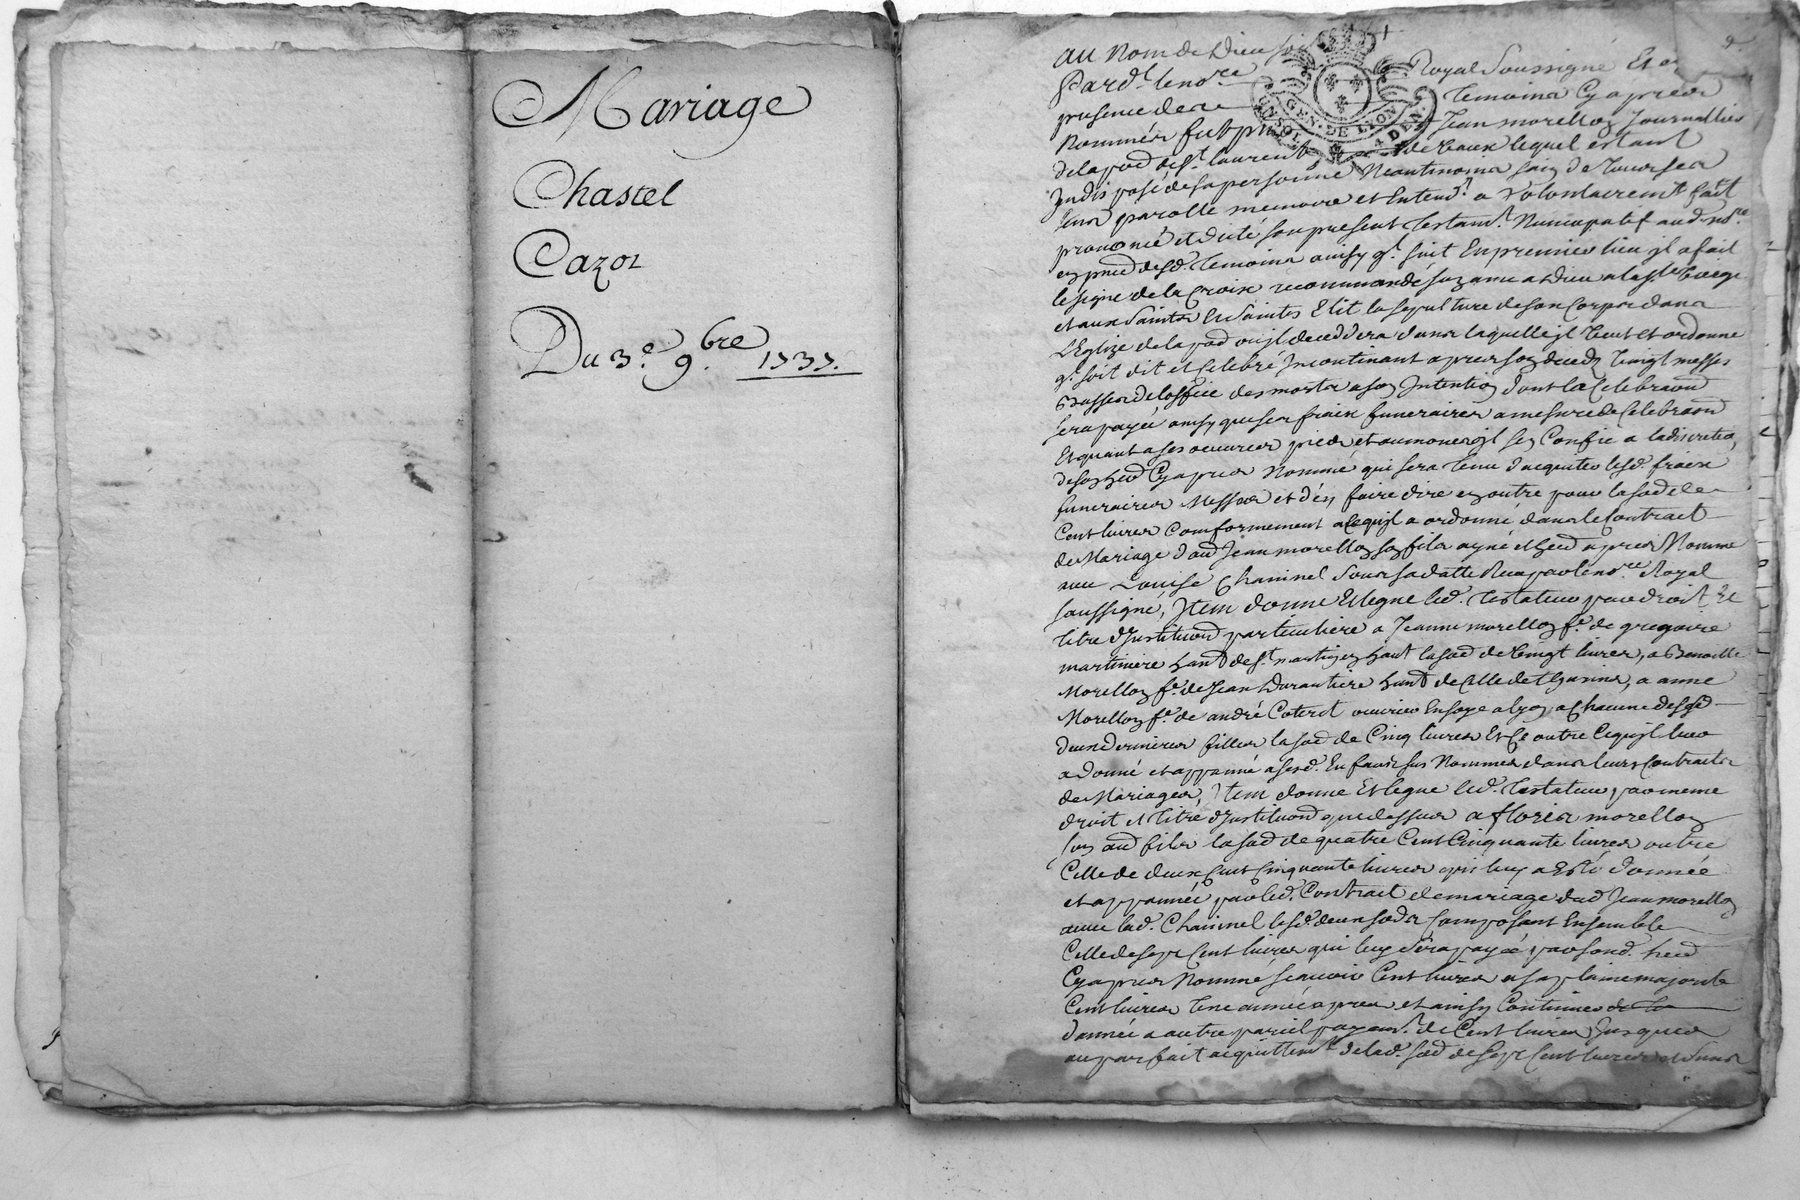 Mariage
Chastel
Cazot
Du 3.e 9.bre 1737.
au Nom de Dieu soi
Pard.t le no.re Royal Soussigné Et en
presence des temoins Cy apres
Nommés fut Jean morellon Journallier
de la par de s.t laurent de Vaux lequel estant
Indisposé de sa personne Neantmoins sain de tous ses
sens parolle memoire et Entend.t a Volontairem.t fait
prononcé et dicté son present testam.t Nuncupatif aud. no.re
en pnce desd. temoins ainsy q.l suit En premier lieu jl a fait
le signe de la Croix recommandé son ame a Dieu a la s.te Vierge
et aux Saints Et Saintes Elit la sepulture de son Corps dans
L'Eglize de la par ou jl deceddera dans laquelle jl Veut et ordonne
q.l soit dit et Celebré Incontinant apres son deceds Vingt messes
basses de l'office des morts a son Intention dont la Celebraon
sera payée ainsy que ses fraix funeraires a mesure de Celebraon
Et quant a ses oeuvres pies et aumones jl s'en Confie a la discretion
de son her Cy apres Nommé qui sera tenu d'acquiter lesd. fraix
funeraires Messes et d'en faire dire en outre pour la so.e de
Cent livres Conformement a Ce qu'jl a ordonné dans le Contract
de Mariage dud Jean morellon son fils ayné et her apres Nommé
avec Louise Chaninel sous sa datte Receu par le no.re Royal
soussigné, Jtem donne Et legue led. testateur par droit Et
titre d'Institution particuliere a Jeanne morellon f.e de gregoire
martiniere hant de s.t martin en haut la so.e de Vingt livres, a Benoitte
Morellon f.e de Jean Durantiere hant de Celle de thurins, a anne
Morellon f.e de andré Coteret ouvrier En soye a lyon a Chacune desd
deux dernieres filles la so.e de Cinq livres Et Ce outre Ce qu'jl leur
a donné et appanné a sesd. Enfans sus Nommés dans leurs Contracts
de Mariages, Jtem donne Et legue led. testateur par meme
droit et titre d'Institution que dessus a floris morellon
son aud fils la so.e de quatre Cent Cinquante livres outre
Celle de deux Cent Cinquante livres qui luy a Esté donnée
et appannée par led. Contract de mariage dud Jean morellon
avec lad. Chaninel lesd. deux so.es Composant Ensemble
Celle de sept Cent livres qui luy sera payée par sond. her
Cy apres Nommé scavoir Cent livres a sa plaine majorité
Cent livres Une année apres et ainsy Continuer
d'année a autre pareil payem.t de Cent livres Jusques
au parfait acquittem.t de lad. so.e de sept Cent livres et sans